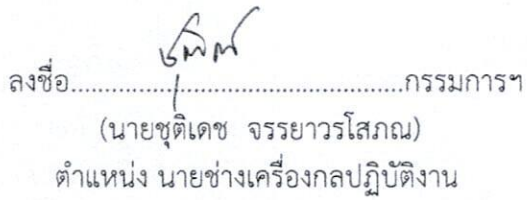 ลงชื่อ..................................................กรรมการฯ
(นายชุติเดช จรรยาวรโสภณ)
ตำแหน่ง นายช่างเครื่องกลปฏิบัติงาน